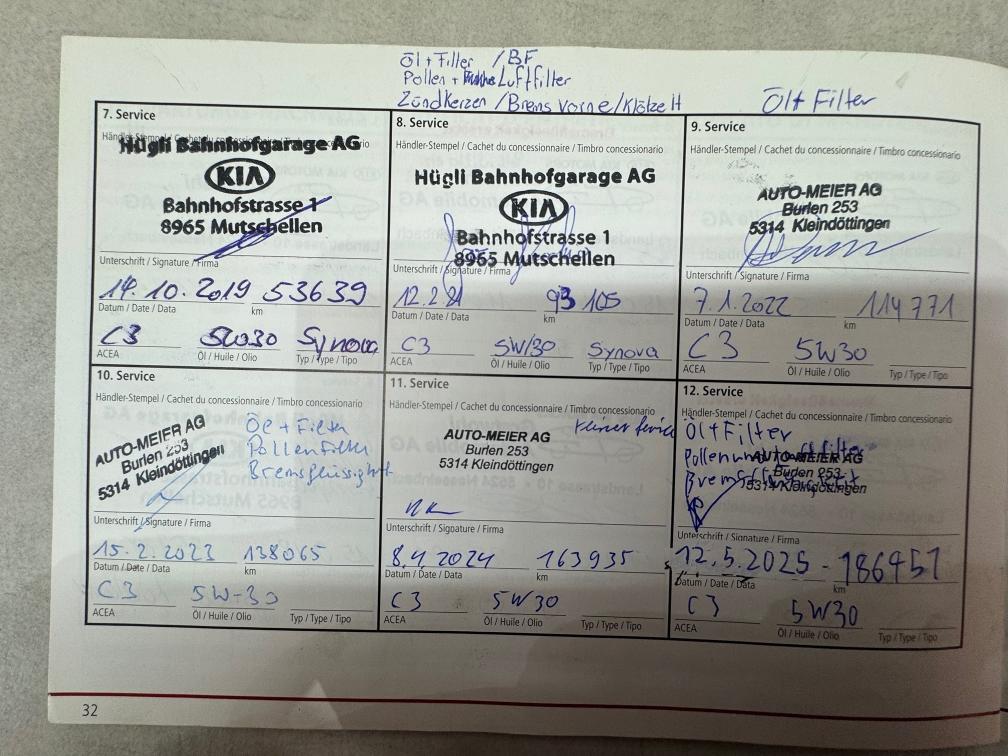 Öl + Filter / BF
Pollen + Luftfilter
Zündkerzen / Brems Vorne / Klötze H
Öl + Filter
7. Service
Händler-Stempel / Cachet du concessionnaire / Timbro concessionario
Hügli Bahnhofgarage AG
KIA
Bahnhofstrasse 1
8965 Mutschellen
Unterschrift / Signature / Firma
14.10.2019 53639
Datum / Date / Data km
C3 5W30 Synova
ACEA Öl / Huile / Olio Typ / Type / Tipo
8. Service
Händler-Stempel / Cachet du concessionnaire / Timbro concessionario
Hügli Bahnhofgarage AG
KIA
Bahnhofstrasse 1
8965 Mutschellen
Unterschrift / Signature / Firma
12.2.21 93 105
Datum / Date / Data km
C3 5W/30 Synova
ACEA Öl / Huile / Olio Typ / Type / Tipo
9. Service
Händler-Stempel / Cachet du concessionnaire / Timbro concessionario
AUTO-MEIER AG
Burlen 253
5314 Kleindöttingen
Unterschrift / Signature / Firma
7.1.2022 114771
Datum / Date / Data km
C3 5W30
ACEA Öl / Huile / Olio Typ / Type / Tipo
10. Service
Händler-Stempel / Cachet du concessionnaire / Timbro concessionario
AUTO-MEIER AG
Burlen 253
5314 Kleindöttingen
Öl + Filter
Pollenfilter
Bremsflüssigkeit
Unterschrift / Signature / Firma
15.2.2023 138065
Datum / Date / Data km
C3 5W-30
ACEA Öl / Huile / Olio Typ / Type / Tipo
11. Service
Händler-Stempel / Cachet du concessionnaire / Timbro concessionario
kleiner Service
AUTO-MEIER AG
Burlen 253
5314 Kleindöttingen
Unterschrift / Signature / Firma
8.4.2024 163935
Datum / Date / Data km
C3 5W30
ACEA Öl / Huile / Olio Typ / Type / Tipo
12. Service
Händler-Stempel / Cachet du concessionnaire / Timbro concessionario
Öl + Filter
Pollen und Luftfilter
Bremsflüssigkeit
AUTO-MEIER AG
Burlen 253
5314 Kleindöttingen
Unterschrift / Signature / Firma
12.5.2025 - 186457
Datum / Date / Data km
C3 5W30
ACEA Öl / Huile / Olio Typ / Type / Tipo
32